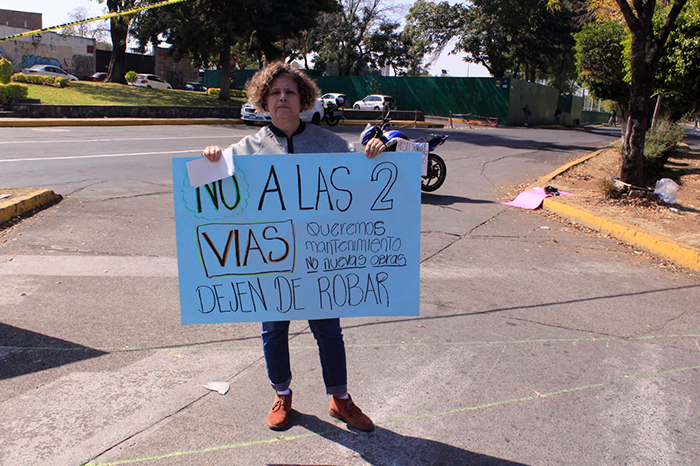 NO A LAS 2
VIAS
QUEREMOS
mantenimiento
NO NUEVAS OBRAS
DEJEN DE ROBAR